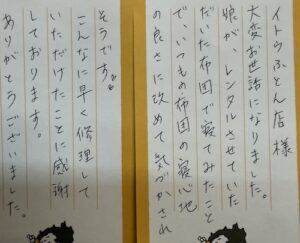 イトウふとん店 様
大変お世話になりました。
娘が、レンタルさせていた
だいた布団で寝てみたこと
で、いつもの布団の寝心地
の良さに改めて気づかされ
そうです。
こんなに早く修理して
いただけたことに感謝
しております。
ありがとうございました。